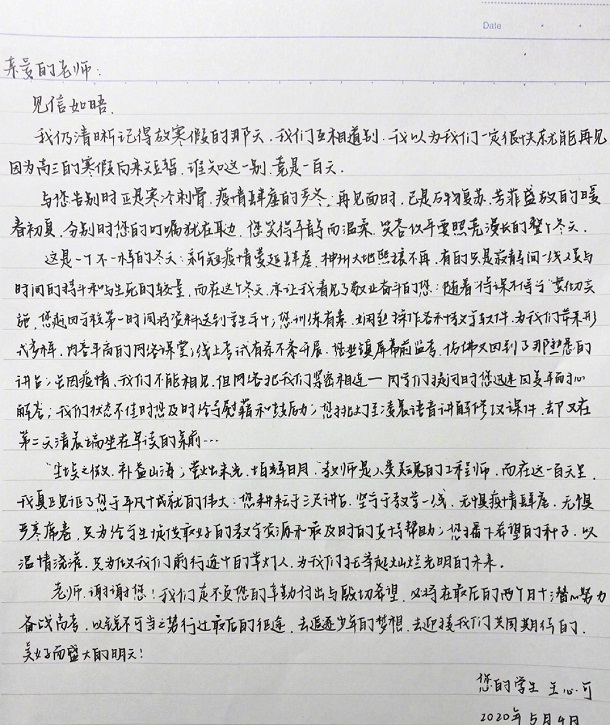 Date
亲爱的老师:
见信如晤.
我仍清晰记得放寒假的那天,我们互相道别,我以为我们一定很快就能再见
因为高三的寒假向来短暂,谁知这一别,竟是一百天.
与您告别时正是寒冷刺骨,疫情肆虐的严冬;再见面时,已是万物复苏,芳菲盛放的暖
春初夏,分别时您的叮嘱犹在耳边,您笑得平静而温柔,笑容似乎要照亮漫长的整个冬天.
这是一个不一样的冬天:新冠疫情蔓延肆虐,神州大地熙攘不再,有的只是前线与
时间的搏斗和与生死的较量,而在这个冬天,亦让我看见了敬业奋斗的您:随着"停课不停学"实
施,您想方设法第一时间将资料送到学生手中;您训练有素,娴熟操作各种教学软件,为我们带来形
式多样,内容丰富的网络课堂;线上考试有条不紊开展,您坐镇屏幕前监考,仿佛又回到了那熟悉的
讲台;虽因疫情,我们不能相见,但网络把我们紧密相连——同学们疑问时您迅速因美丰的心
解答;我们状态不佳时您及时给予慰藉和鼓励;您挑灯至凌晨语音讲解修改课件,却又在
第二天清晨端坐在早读的桌前…
"尘埃之微,补益山海;萤烛末光,增辉日月."教师是人类灵魂的工程师,而在这一百天里,
我真正见证了您于平凡中成就的伟大:您耕耘于三尺讲台,坚守于教学一线,无惧疫情肆虐,无惧
严寒席卷,只为给学生提供最好的教学资源和最及时的支持帮助;您播下希望的种子,以
温情浇灌,只为做我们前行途中的掌灯人,为我们托举起灿烂光明的未来.
老师,谢谢您!我们定不负您的辛勤付出与殷切希望,必将在最后的两个月中潜心努力
备战高考,以锐不可当之势行过最后的征途,去追逐少年的梦想,去迎接我们共同期待的,
美好而盛大的明天!
您的学生 王心可
2020年5月9日